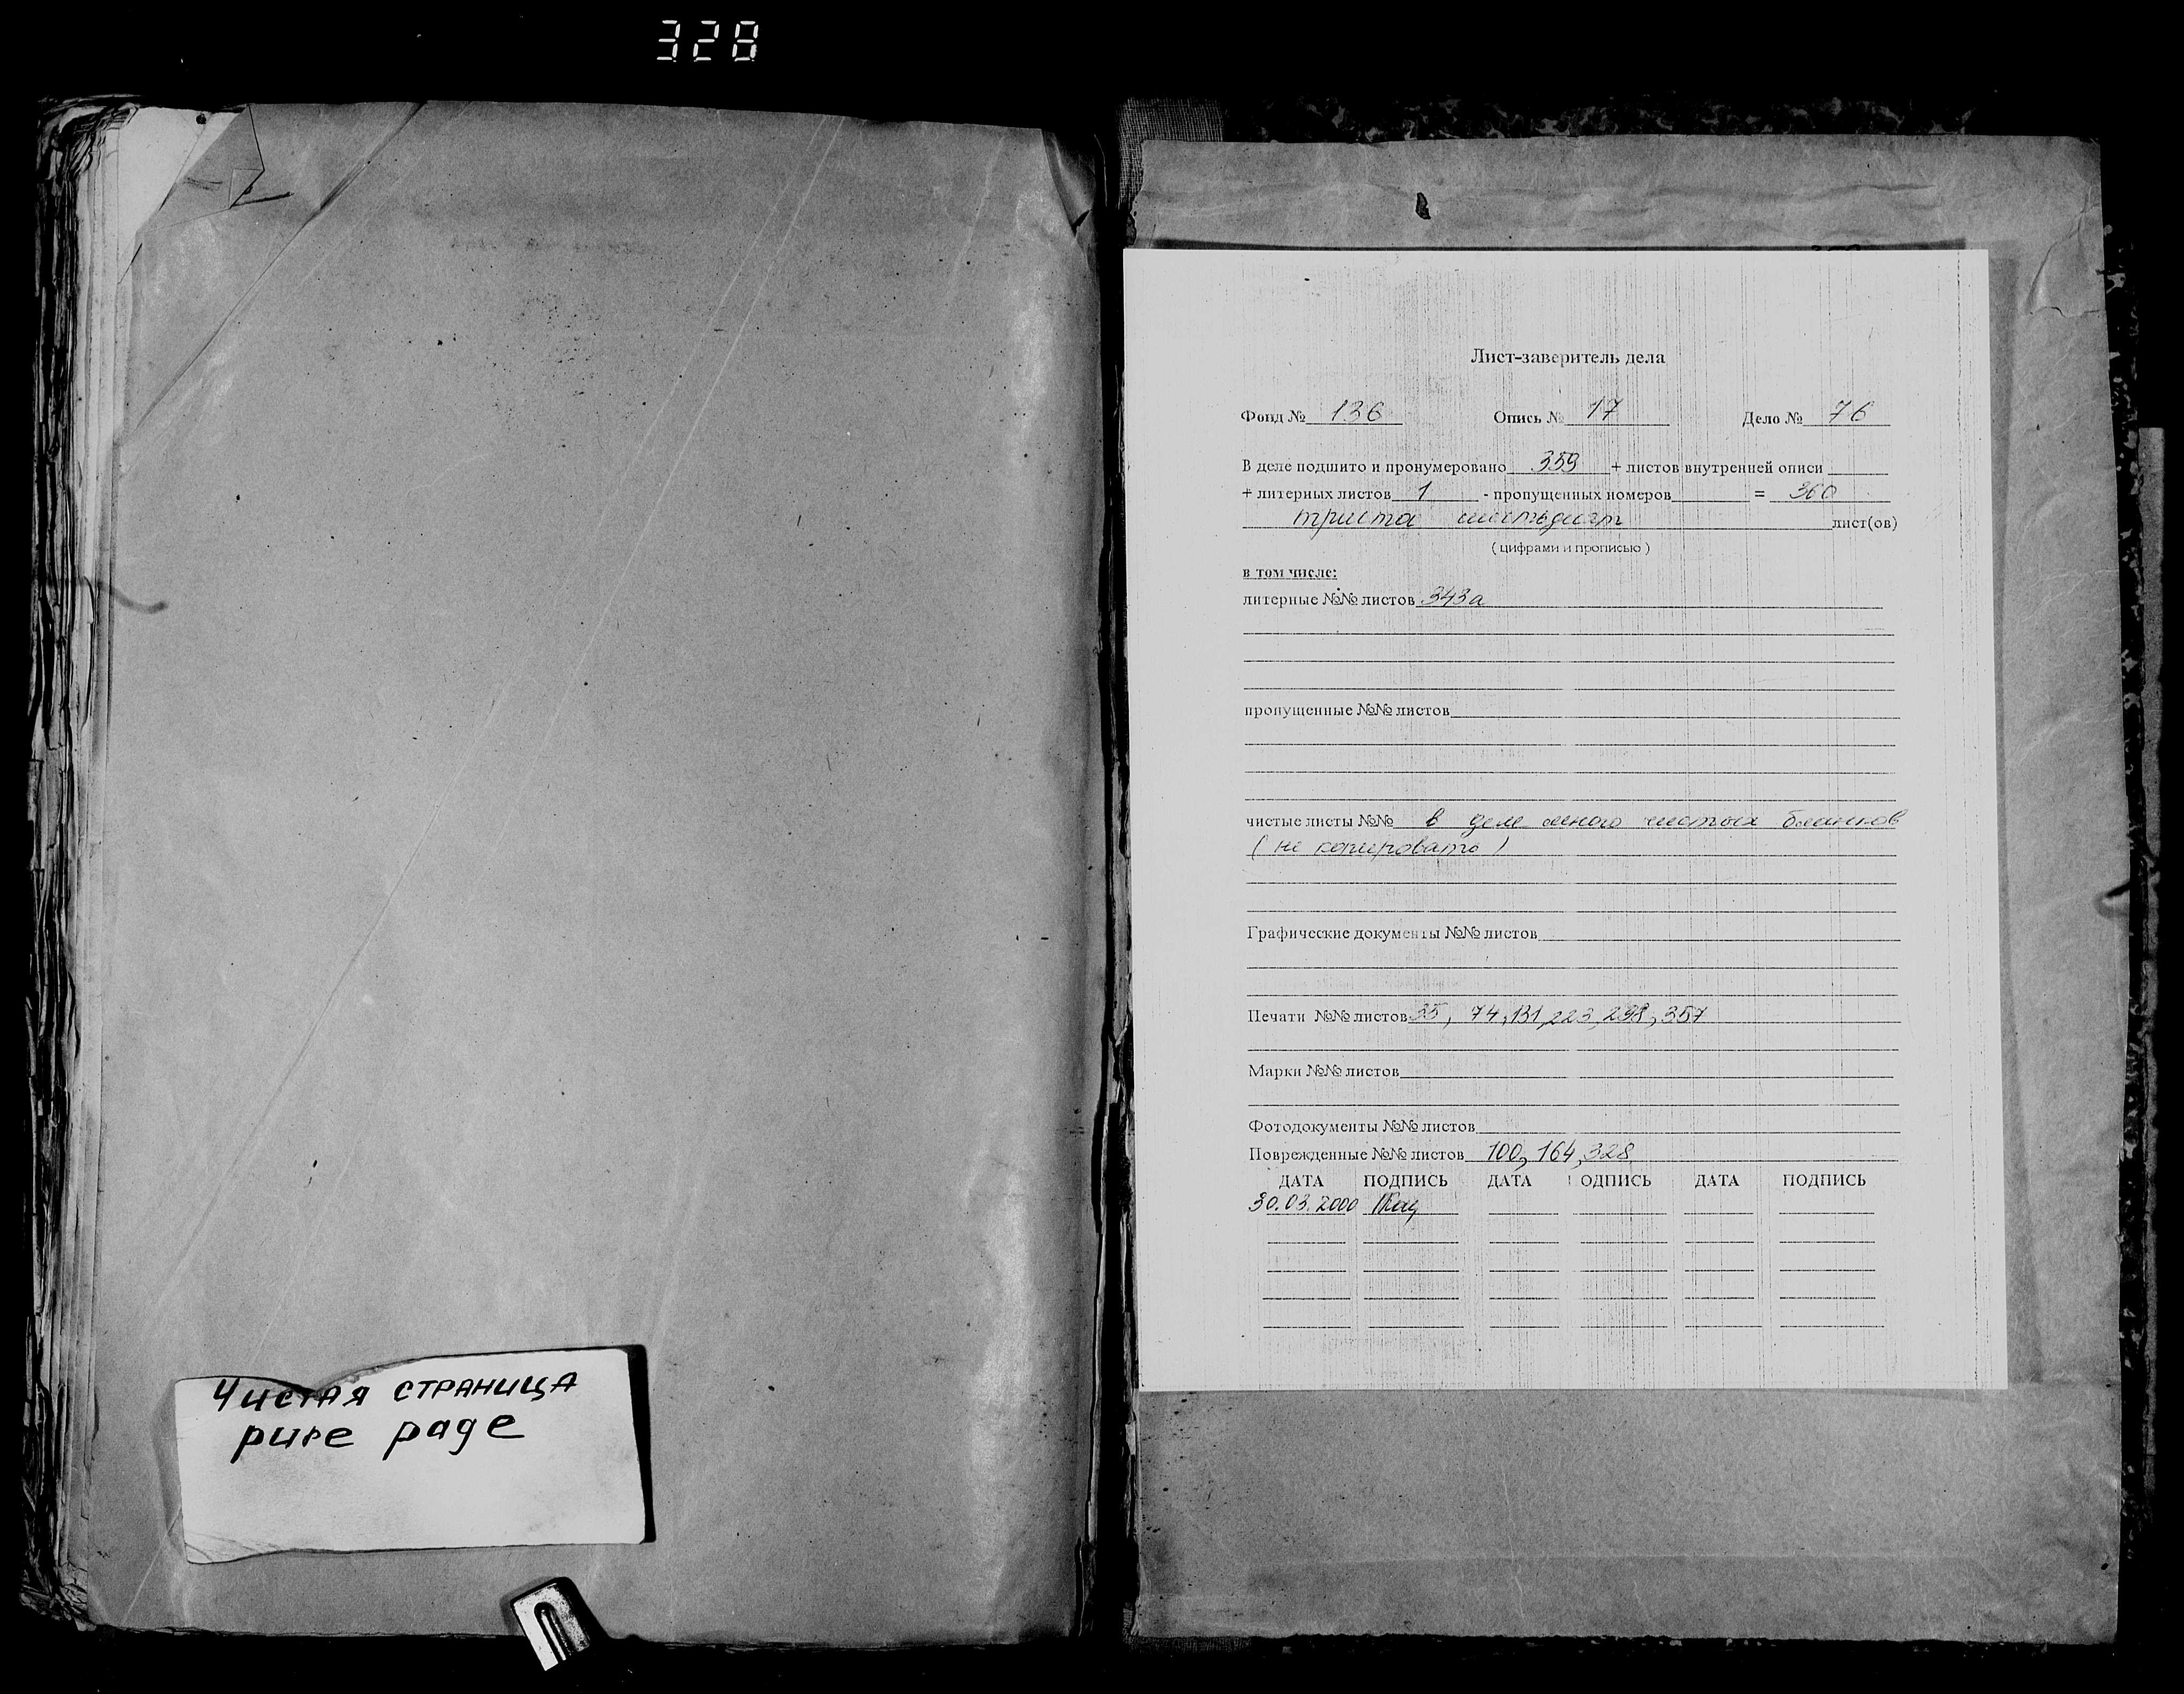 328
Чистая страница
pure page
Лист-заверитель дела
Фонд № 136 Опись № 17 Дело № 76
В деле подшито и пронумеровано 359 + листов внутренней описи
+ литерных листов 1 - пропущенных номеров = 360
триста шестьдесят лист(ов)
( цифрами и прописью )
в том числе:
литерные №№ листов 343а
пропущенные №№ листов
чистые листы №№ в деле много чистых бланков
( не копировать )
Графические документы №№ листов
Печати №№ листов 35, 74, 131, 223, 238, 357
Марки №№ листов
Фотодокументы №№ листов
Поврежденные №№ листов 100, 164, 328
ДАТА ПОДПИСЬ ДАТА ПОДПИСЬ ДАТА ПОДПИСЬ
30.03.2000